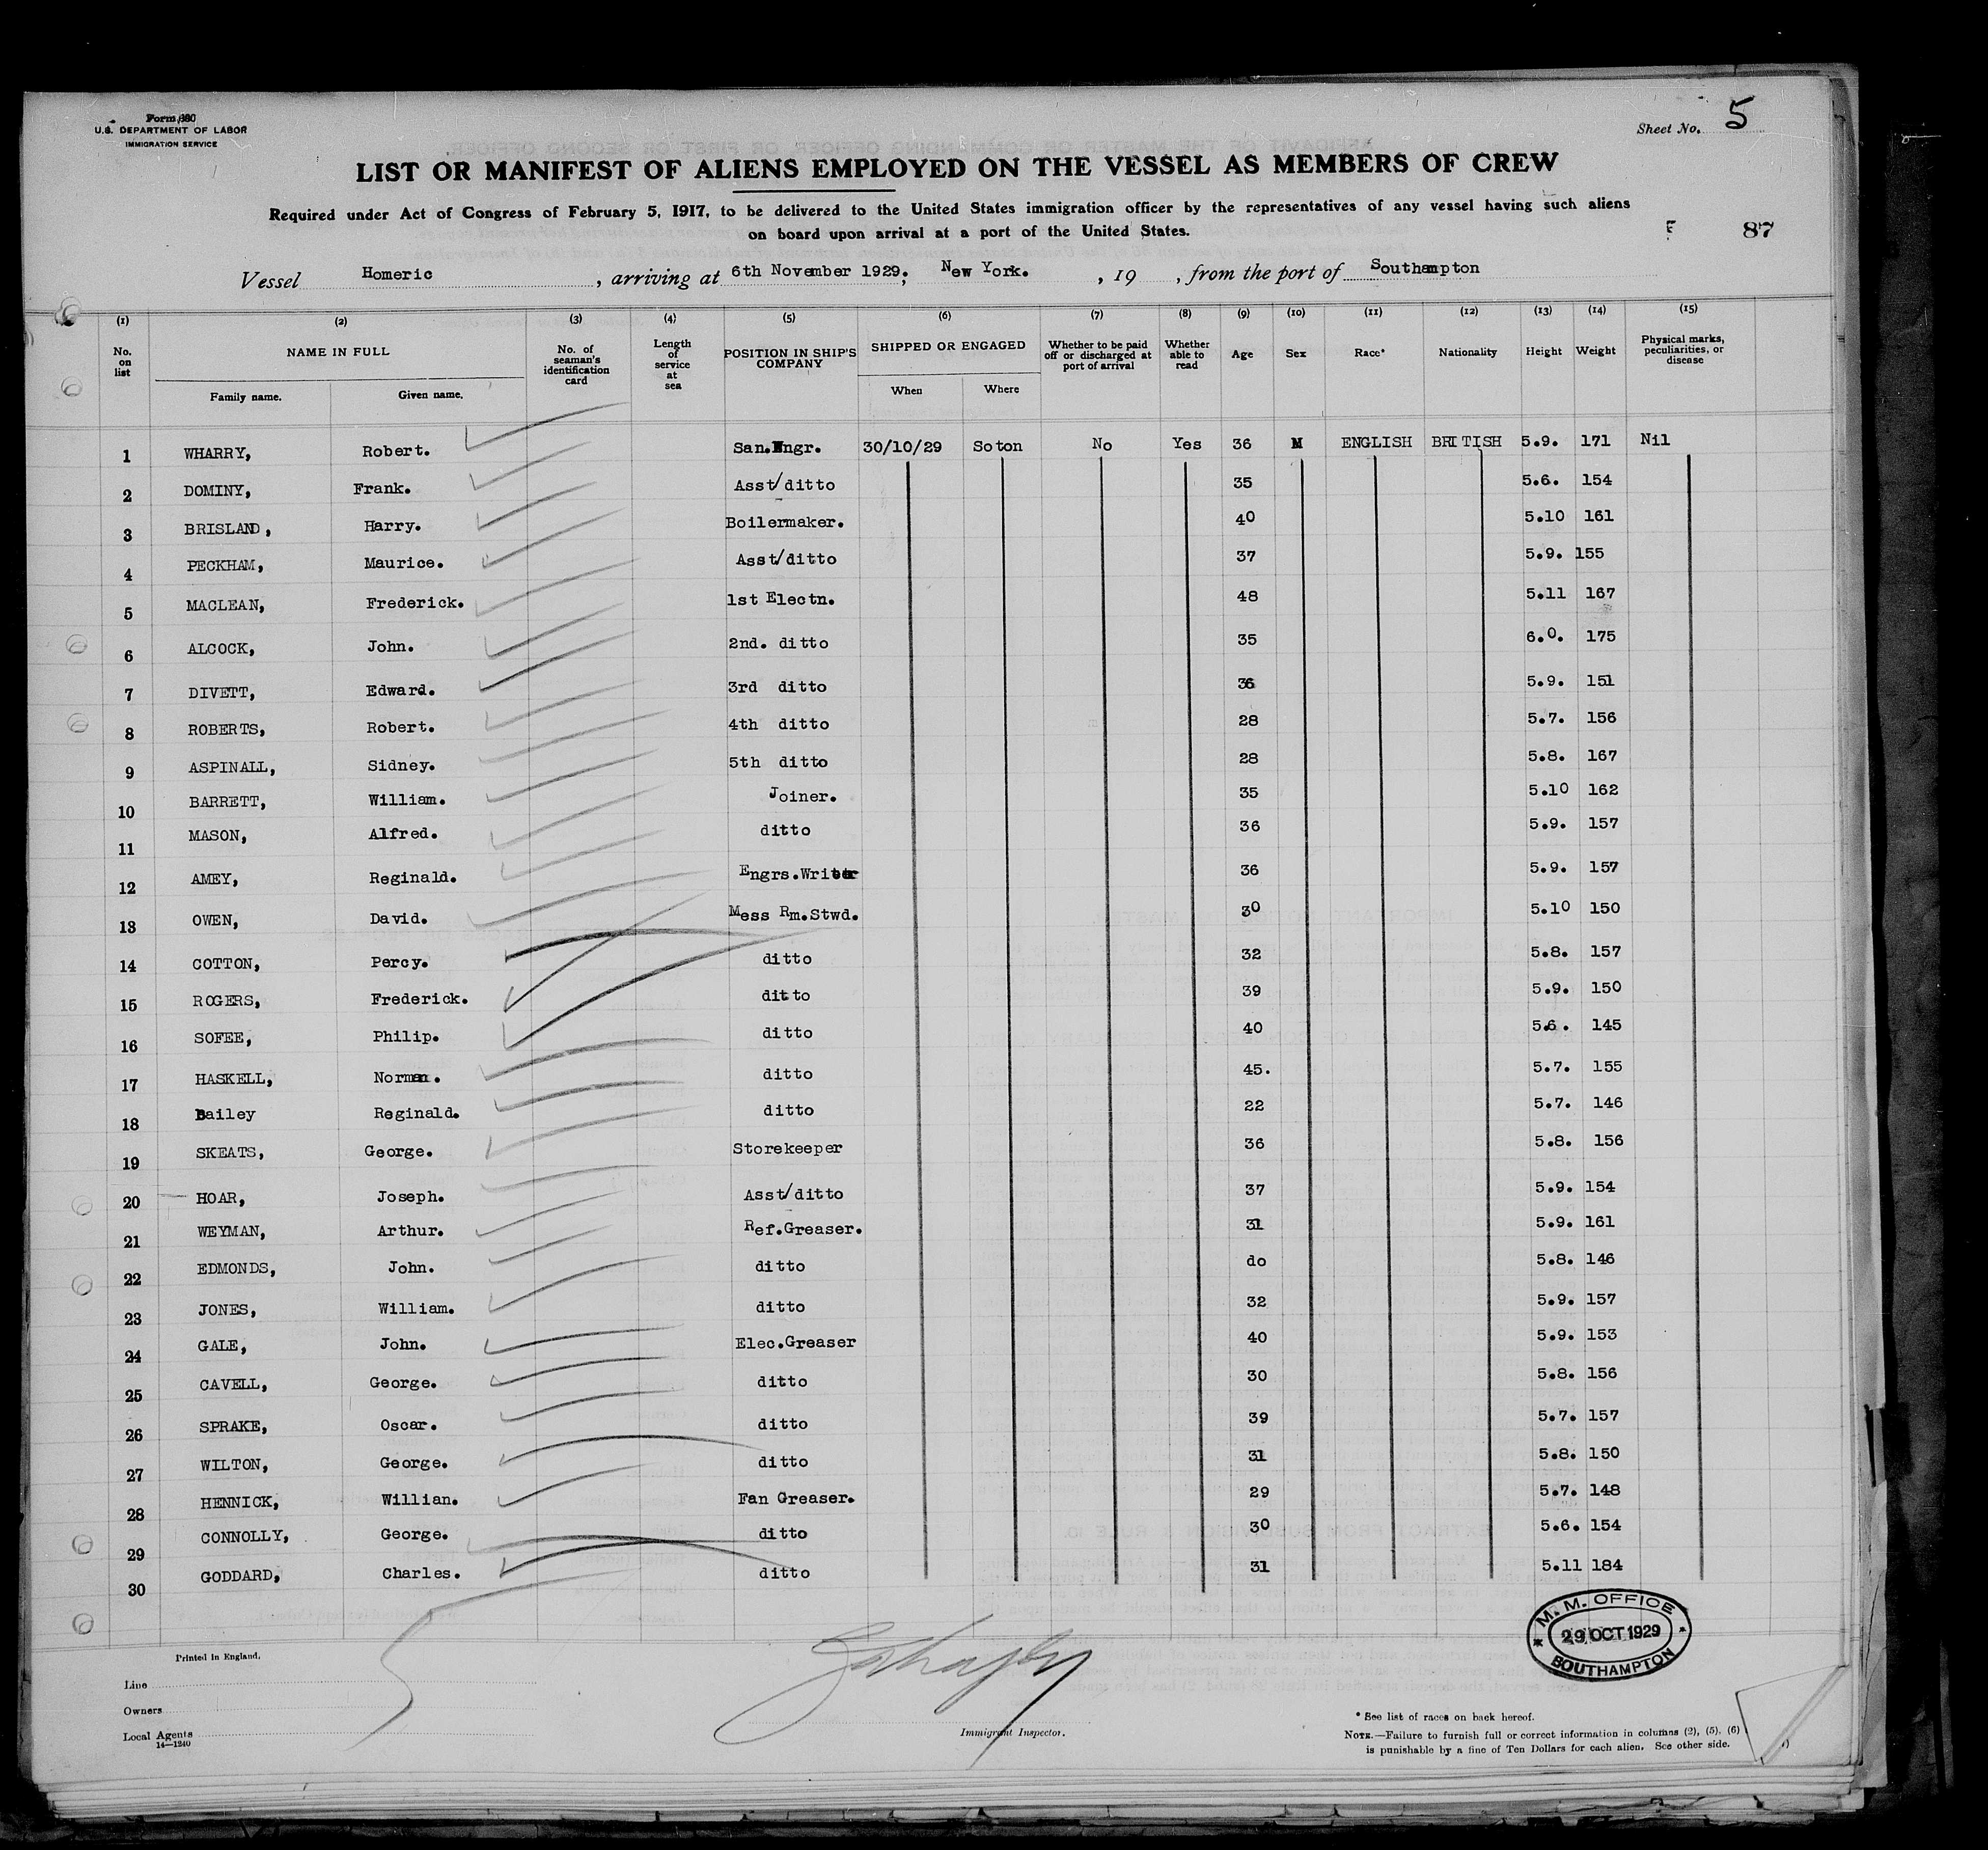 Form 680
U.S. DEPARTMENT OF LABOR
IMMIGRATION SERVICE
Sheet No. 5
LIST OR MANIFEST OF ALIENS EMPLOYED ON THE VESSEL AS MEMBERS OF CREW
Required under Act of Congress of February 5, 1917, to be delivered to the United States immigration officer by the representatives of any vessel having such aliens
on board upon arrival at a port of the United States.
87
Vessel Homeric, arriving at 6th November 1929. New York. , 19 , from the port of Southampton
(1) (2) (3) (4) (5) (6) (7) (8) (9) (10) (11) (12) (13) (14) (15)
No. on list NAME IN FULL Family name. Given name. No. of seaman's identification card Length of service at sea POSITION IN SHIP'S COMPANY SHIPPED OR ENGAGED When Where Whether to be paid off or discharged at port of arrival Whether able to read Age Sex Race* Nationality Height Weight Physical marks, peculiarities, or disease
1 WHARRY, Robert. San.Engr. 30/10/29 Soton No Yes 36 M ENGLISH BRITISH 5.9. 171 Nil
2 DOMINY, Frank. Asst/ditto 35 5.6. 154
3 BRISLAND, Harry. Boilermaker. 40 5.10 161
4 PECKHAM, Maurice. Asst/ditto 37 5.9. 155
5 MACLEAN, Frederick. 1st Electn. 48 5.11 167
6 ALCOCK, John. 2nd. ditto 35 6.0. 175
7 DIVETT, Edward. 3rd ditto 36 5.9. 151
8 ROBERTS, Robert. 4th ditto 28 5.7. 156
9 ASPINALL, Sidney. 5th ditto 28 5.8. 167
10 BARRETT, William. Joiner. 35 5.10 162
11 MASON, Alfred. ditto 36 5.9. 157
12 AMEY, Reginald. Engrs.Writer 36 5.9. 157
13 OWEN, David. Mess Rm.Stwd. 30 5.10 150
14 COTTON, Percy. ditto 32 5.8. 157
15 ROGERS, Frederick. ditto 39 5.9. 150
16 SOFEE, Philip. ditto 40 5.6. 145
17 HASKELL, Norman. ditto 45. 5.7. 155
18 Bailey Reginald. ditto 22 5.7. 146
19 SKEATS, George. Storekeeper 36 5.8. 156
20 HOAR, Joseph. Asst/ditto 37 5.9. 154
21 WEYMAN, Arthur. Ref.Greaser. 31 5.9. 161
22 EDMONDS, John. ditto do 5.8. 146
23 JONES, William. ditto 32 5.9. 157
24 GALE, John. Elec.Greaser 40 5.9. 153
25 CAVELL, George. ditto 30 5.8. 156
26 SPRAKE, Oscar. ditto 39 5.7. 157
27 WILTON, George. ditto 31 5.8. 150
28 HENNICK, Willian. Fan Greaser. 29 5.7. 148
29 CONNOLLY, George. ditto 30 5.6. 154
30 GODDARD, Charles. ditto 31 5.11 184
M. M. OFFICE
29 OCT 1929
SOUTHAMPTON
Printed in England.
Line
Owners
Local Agents
14—1240
Immigrant Inspector.
* See list of races on back hereof.
NOTE.—Failure to furnish full or correct information in columns (2), (5), (6)
is punishable by a fine of Ten Dollars for each alien. See other side.